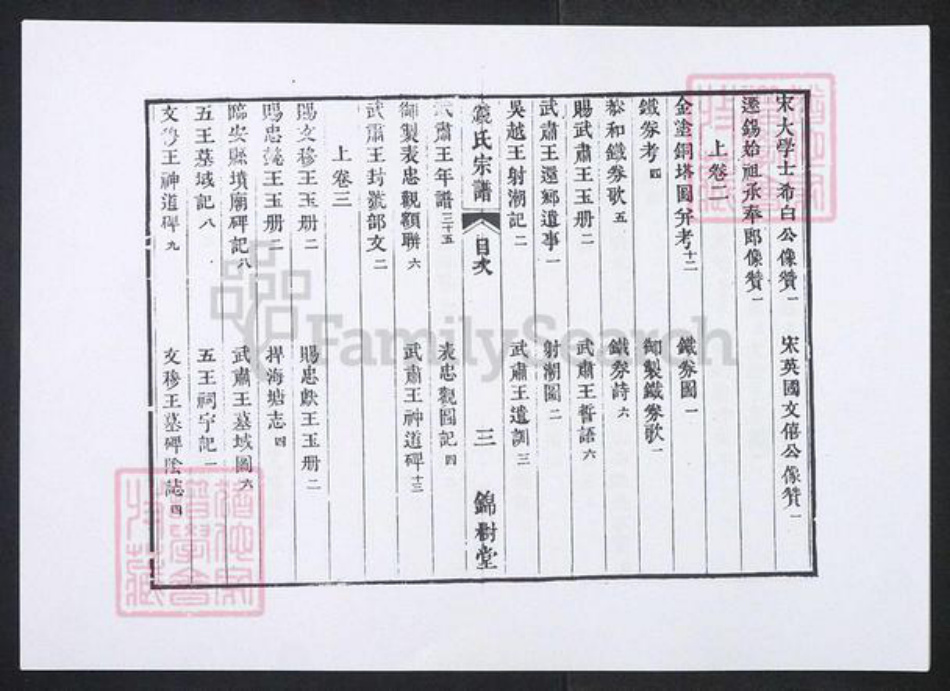 宋大學士希白公像贊一 宋英國文僖公像贊一
遷錫始祖承奉郎像贊一
上卷二
金塗銅塔圖弁考十二 鐵券圖一
鐵券考四 御製鐵券歌一
恭和鐵券歌五 鐵券詩六
賜武肅王玉册二 武肅王誓語六
武肅王還鄉遺事一 射潮圖二
吳越王射潮記二 武肅王遺訓三
錢氏宗譜 目次 三 錦樹堂
武肅王年譜三十五 表忠觀圖記四
御製表忠觀額聯六 武肅王神道碑十三
武肅王封號部文二
上卷三
賜文穆王玉册二 賜忠獻王玉册二
賜忠懿王玉册二 捍海塘志四
臨安縣墳廟碑記八 武肅王墓域圖六
五王墓域記八 五王祠宇記一
文穆王神道碑九 文穆王墓碑陰誌四
FamilySearch